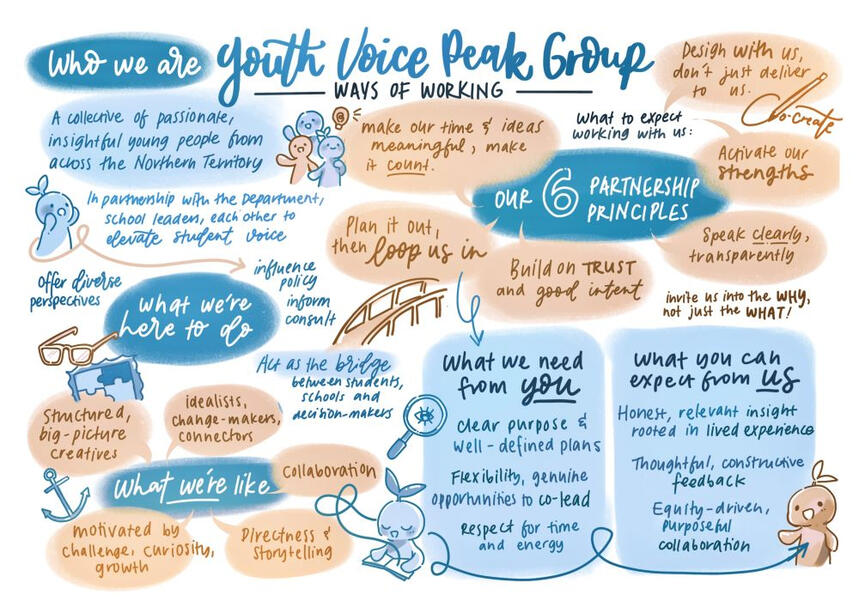 Who we are
Youth Voice Peak Group
WAYS OF WORKING
A collective of passionate,
insightful young people from
across the Northern Territory
In partnership with the Department,
school leaders, each other to
elevate student voice
What we're
here to do
Offer diverse
perspectives
influence
policy
inform
consult
Act as the bridge
between students,
schools and
decision-makers
What we're like
Structured,
big-picture
creatives
idealists,
change-makers,
connectors
Collaboration
motivated by
challenge, curiosity,
growth
Directness &
Storytelling
what to expect
working with us:
OUR 6 PARTNERSHIP
PRINCIPLES
make our time & ideas
meaningful, make
it count.
Design with us,
don't just deliver
to us.
Co-create
Activate our
strengths
Speak clearly,
transparently
invite us into the WHY,
not just the WHAT!
Build on TRUST
and good intent
Plan it out,
then loop us in
What we need
from you
clear purpose &
well-defined plans
Flexibility, genuine
opportunities to co-lead
Respect for time
and energy
What you can
expect from us
Honest, relevant insight
rooted in lived experience
Thoughtful, constructive
feedback
Equity-driven,
purposeful
collaboration